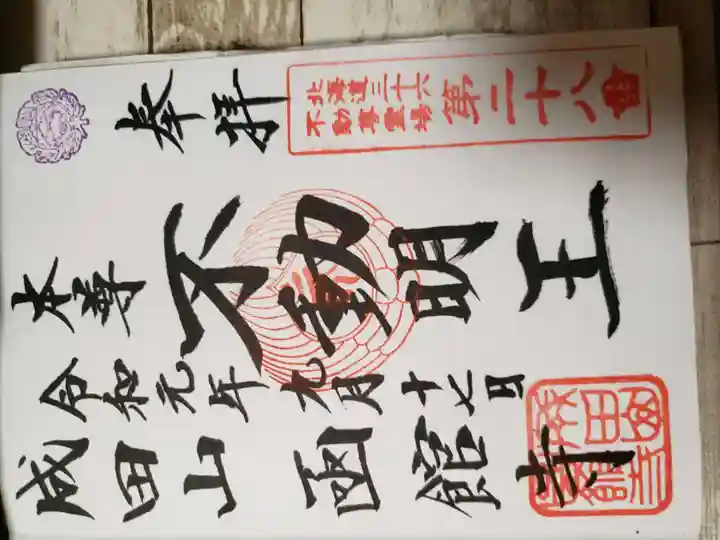 北海道三十六
不動尊霊場
第二十八番
奉拝
不動明王
本尊
令和元年九月十七日
成田山函館寺